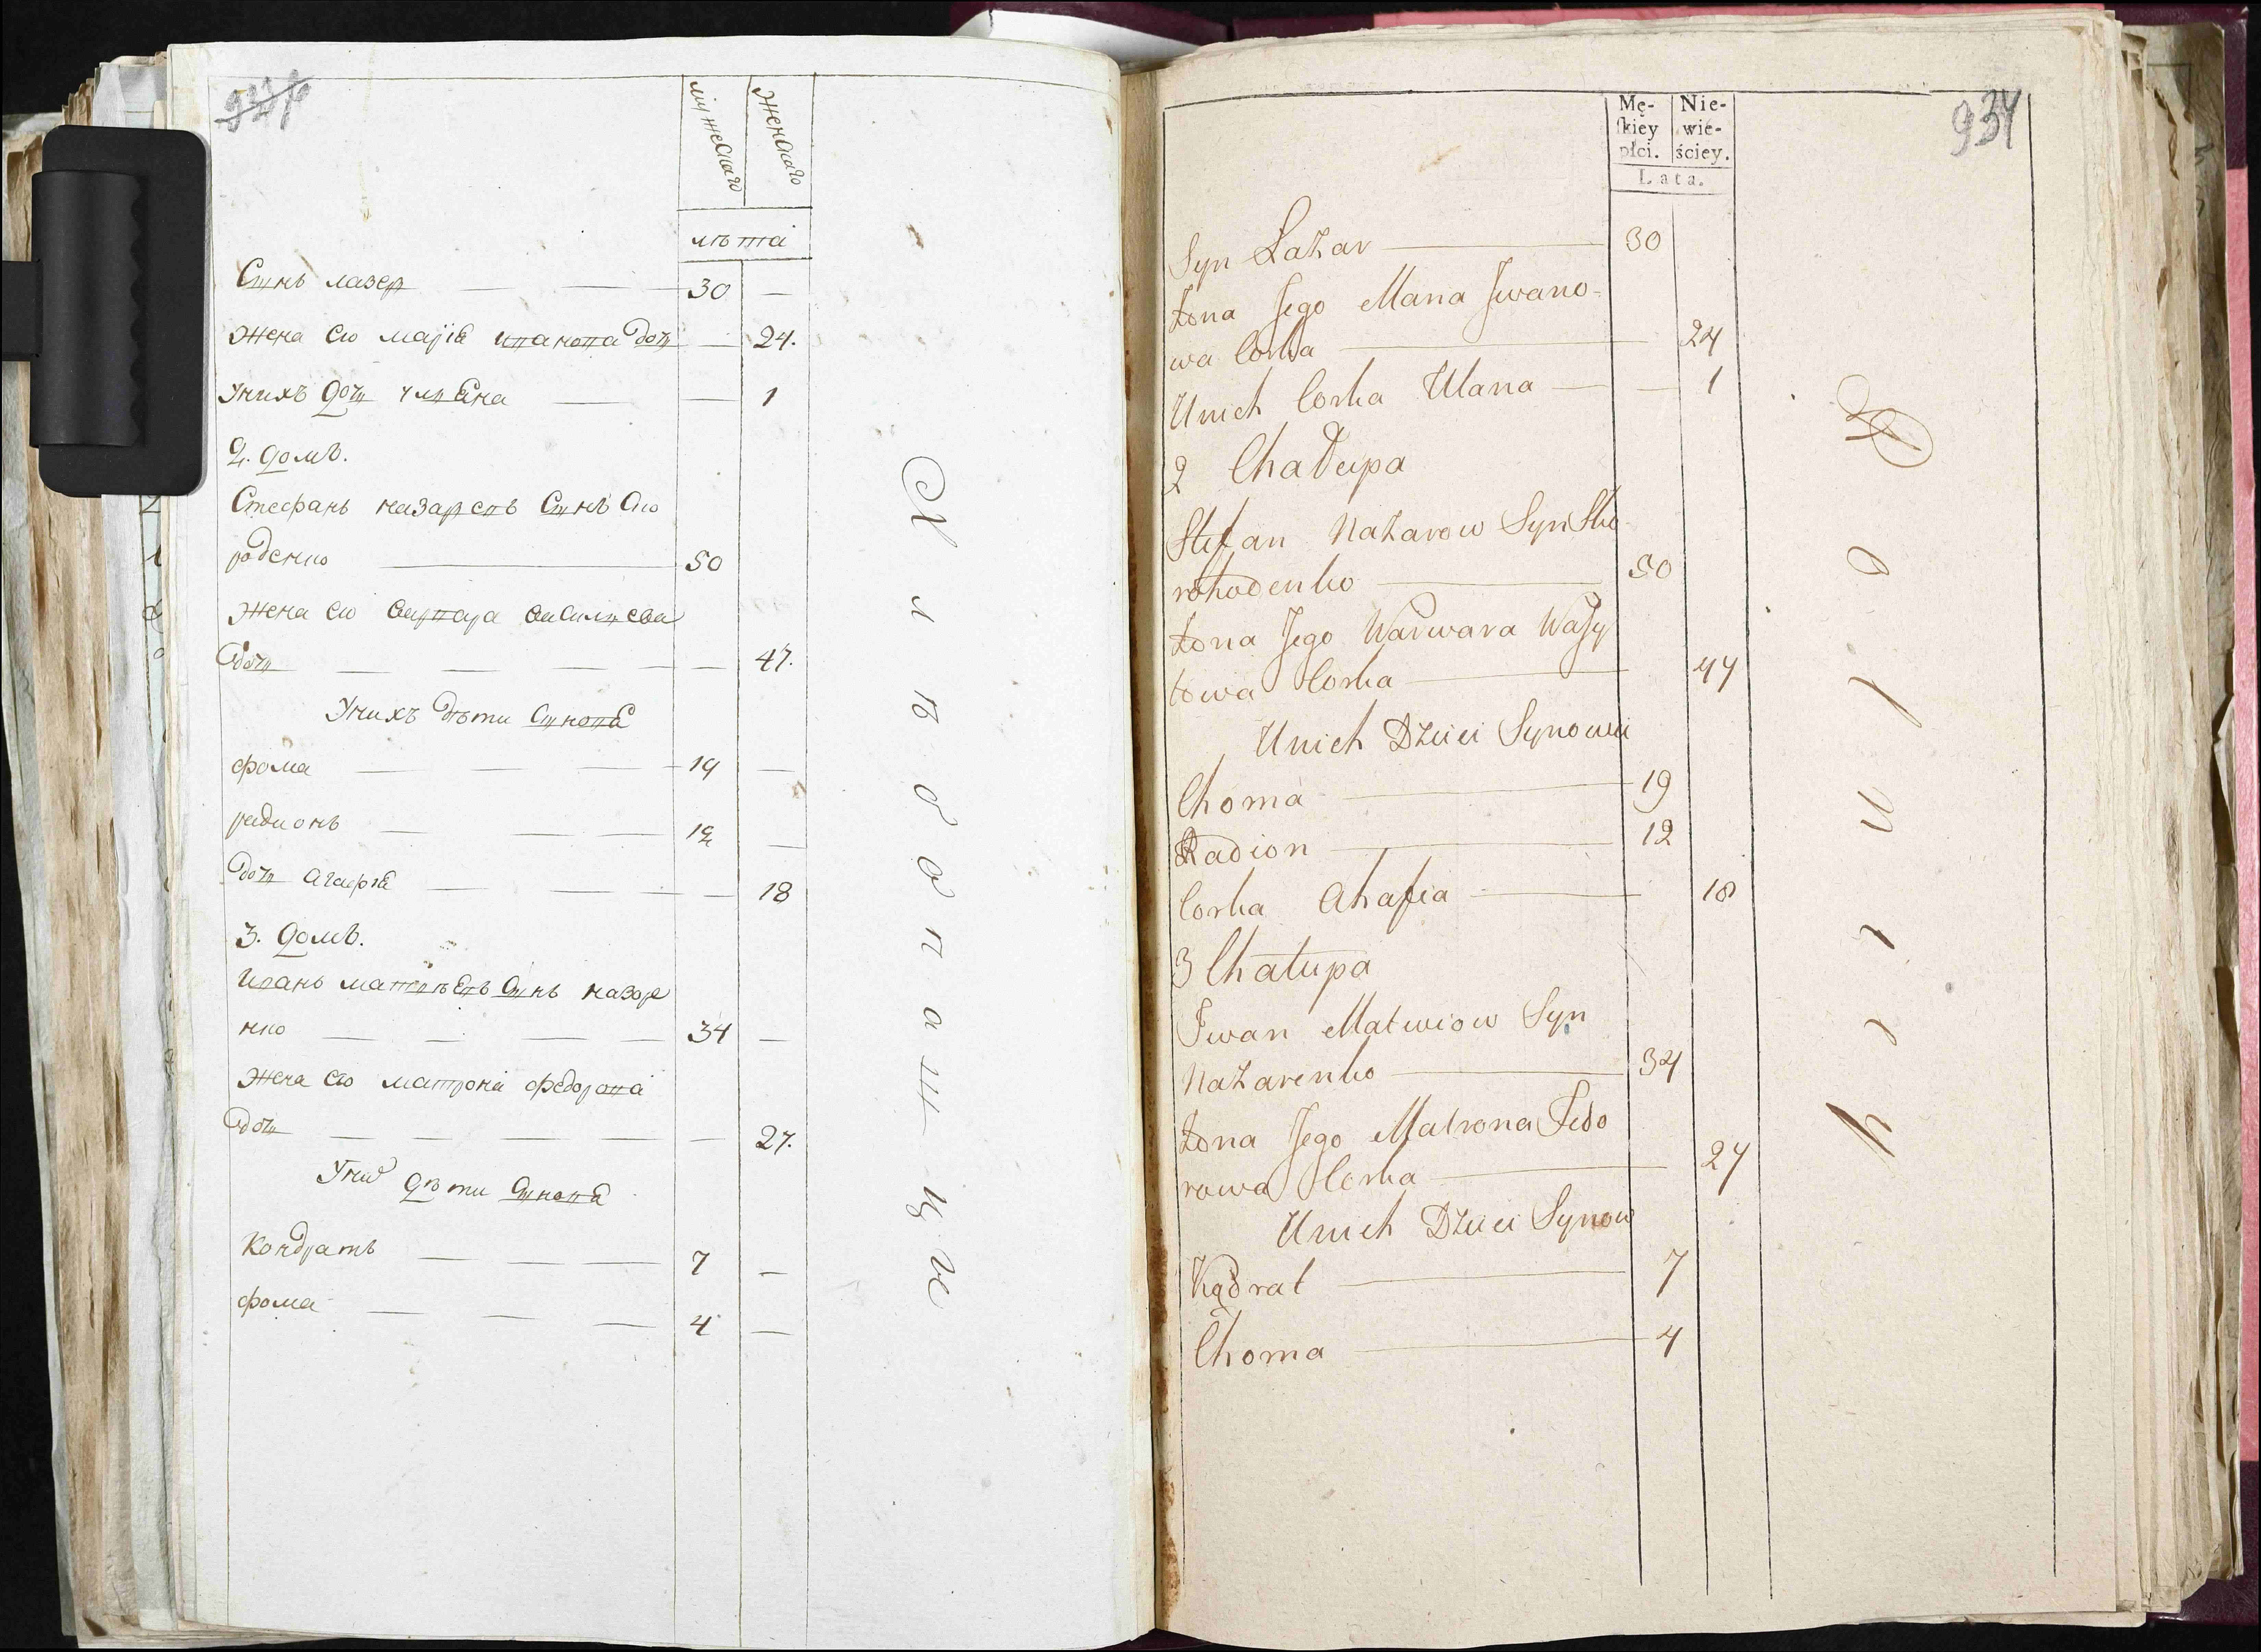 мужескаго
женскаго
лѣта
Сынъ лазер 30
Жена его марія иванова дочь 24.
У нихъ дочь уляна 1
2. домъ.
Стефанъ назаревъ Сынъ Ско
роденко 50
Жена его варвара василіева
дочь 47.
У нихъ дѣти Сынове
фома 19
радионъ 12
дочь агафія 18
3. домъ.
иванъ матвѣевъ Сынъ назаре
нко 34
Жена его матрона федорова
дочь 27.
У них дѣти Сынове
Кондратъ 7
фома 4
Хлѣбопашцы
934
Mę-
skiey
płci.
Nie-
wie-
ściey.
Lata.
Syn Łazar 30
Zona Jego Maria Jwano-
wa Corka 24
Unich Corka Ulana 1
2 Chałupa
Stefan Nazarow Syn Sko-
rohodenko 50
Zona Jego Warwara Wasy
lowa Corka 47
Unich Dzieci Synowie
Choma 19
Radion 12
Corka Ahafia 18
3 Chałupa
Jwan Matwiow Syn
Nazarenko 34
Zona Jego Matrona Fedo
rowa Corka 27
Unich Dzieci Synow
Kądrat 7
Choma 4
Rolnicy